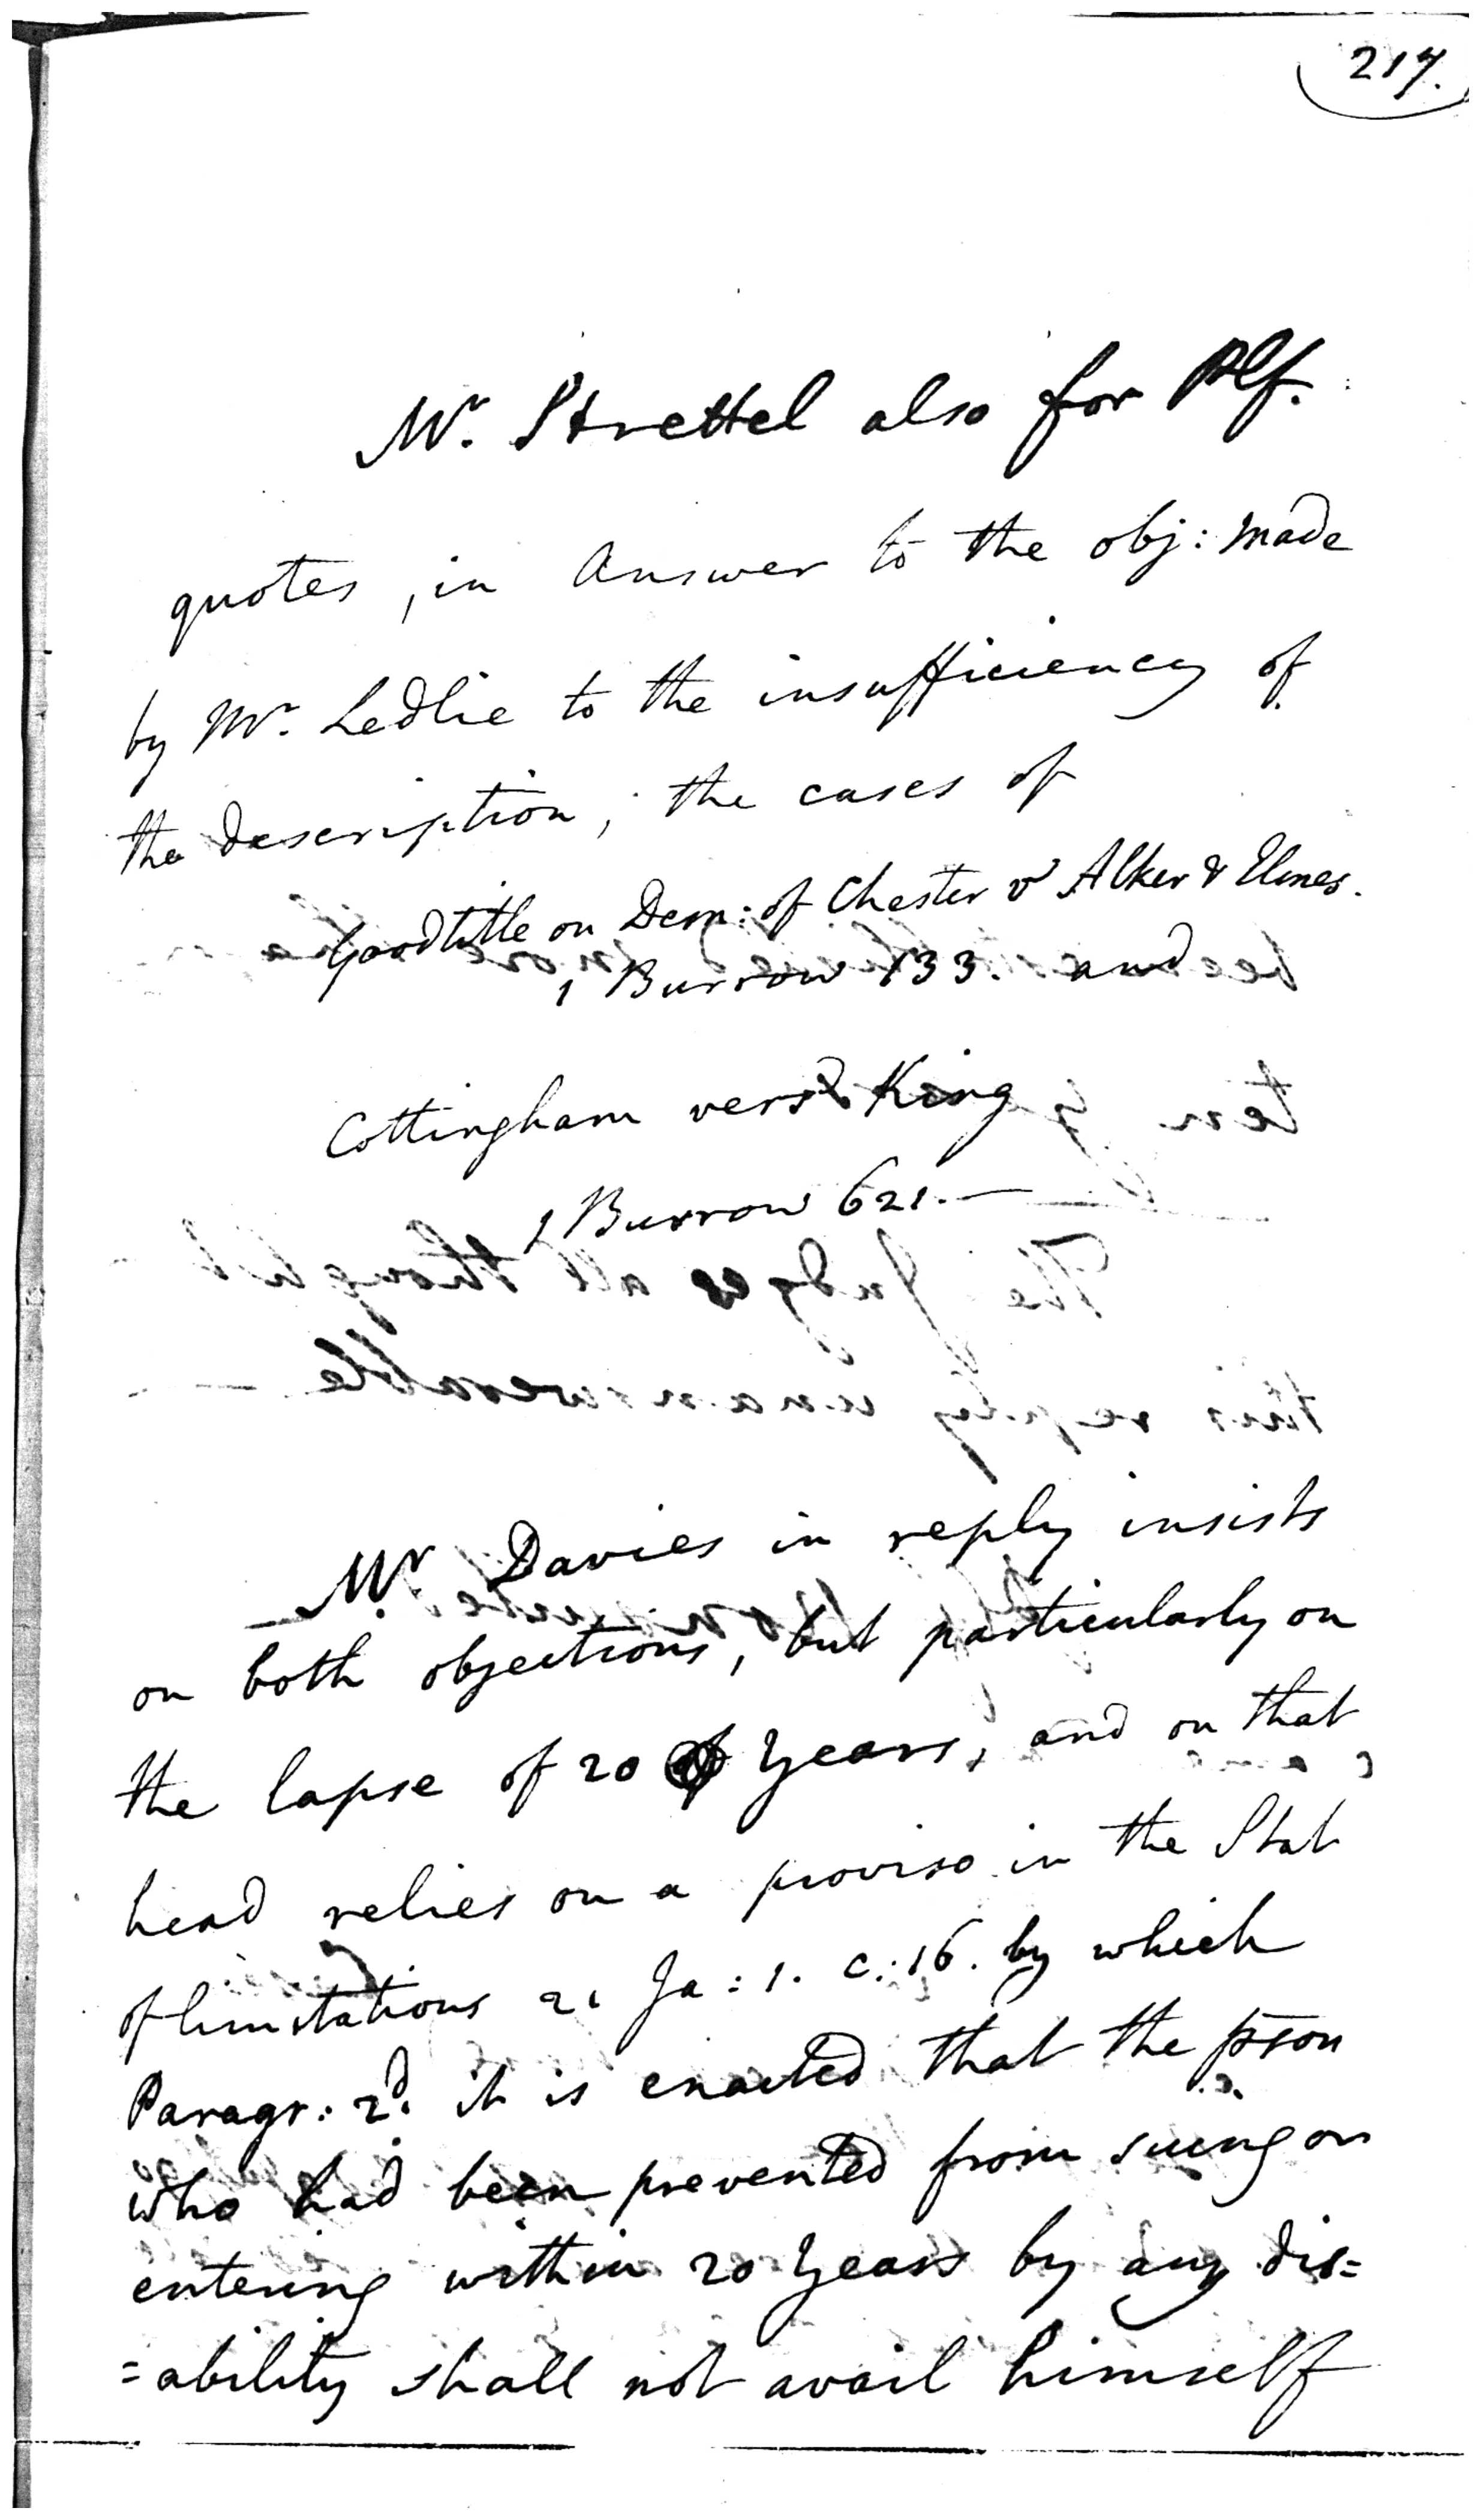 217.
Mr. Strettel also for Plf.
quotes, in Answer to the obj: made
by Mr. Ledlie to the insufficiency of
the description, the cases of
Goodtitle on Dem: of Chester v Alker & Elmes.
1 Burrow 133. and
Cottingham versd King
1 Burrow 621. —
Mr. Davies in reply insists
on both objections, but particularly on
the lapse of 20 Years, and on that
head relies on a proviso in the Stat
of limitations 21 Ja: 1. c: 16. by which
Paragr: 2d. it is enacted that the pson
who had been prevented from suing or
entering within 20 Years by any dis=
=ability shall not avail himself